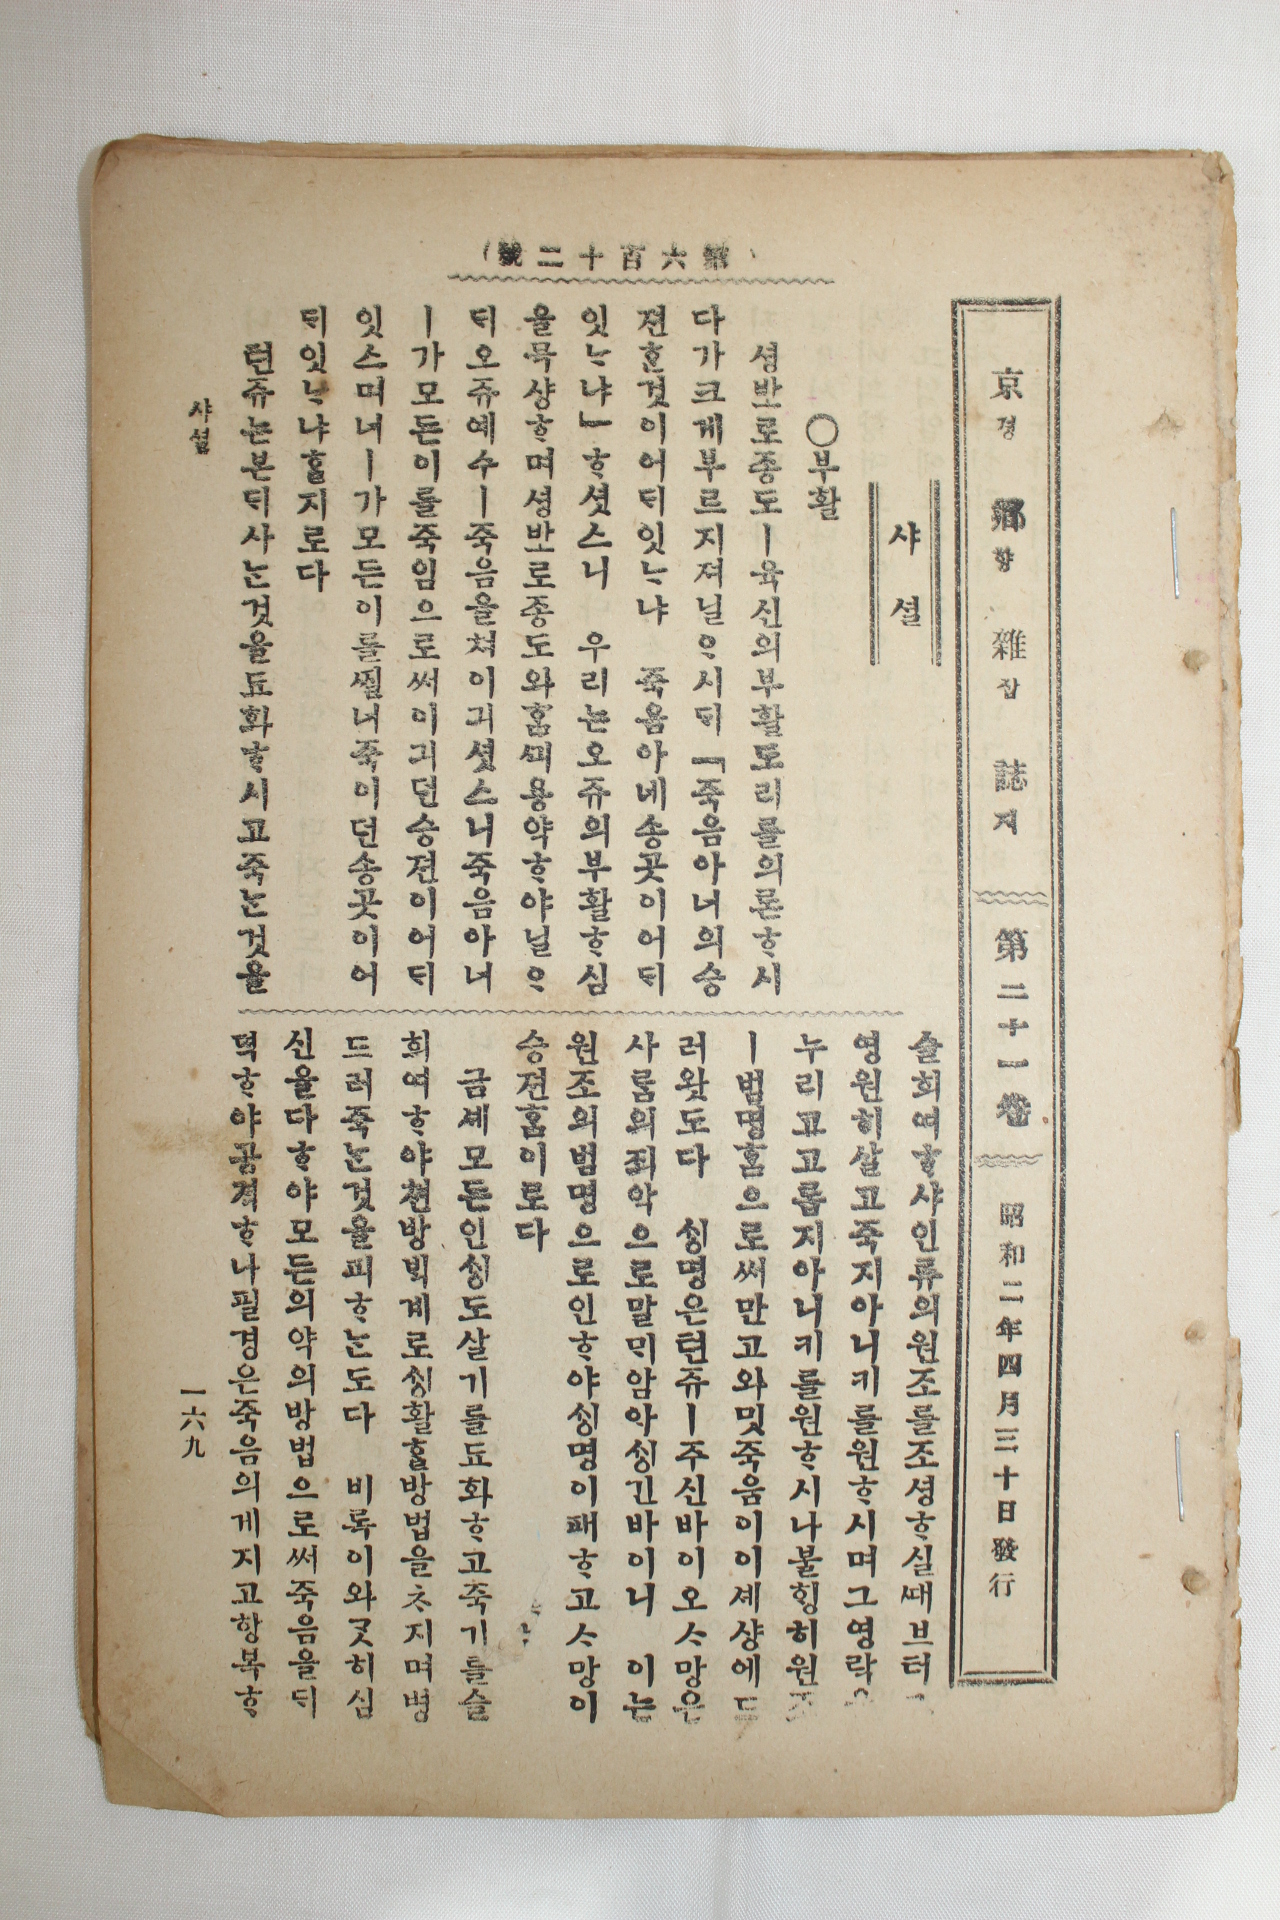 (第六百十二號)
京경鄕향雜잡誌지 第二十一卷 昭和二年四月三十日發行
샤셜
○부활
셩바오로종도ㅣ육신의부활도리를의론ᄒᆞ시
다가크게부르지져닐ᄋᆞ시ᄃᆡ「죽음아너의승
젼ᄒᆞᆫ것이어ᄃᆡ잇ᄂᆞ냐 죽음아네송곳이어ᄃᆡ
잇ᄂᆞ냐」ᄒᆞ셧스니 우리는오쥬의부활ᄒᆞ심
을묵샹ᄒᆞ며셩바오로종도와ᄒᆞᆷᄭᅴ용약ᄒᆞ야닐ᄋᆞ
ᄃᆡ오쥬예수ㅣ죽음을쳐이긔셧스니죽음아너
ㅣ가모든이를죽임으로써이긔던승젼이어ᄃᆡ
잇스며너ㅣ가모든이를ᄶᅵᆯ너죽이던송곳이어
ᄃᆡ잇ᄂᆞ냐ᄒᆞᆯ지로다
텬쥬는본ᄃᆡ사ᄂᆞᆫ것을됴화ᄒᆞ시고죽ᄂᆞᆫ것을
슬희여ᄒᆞ샤인류의원조를조셩ᄒᆞ실ᄯᅢ브터
영원히살고죽지아니키를원ᄒᆞ시며그영락
누리고고롭지아니키를원ᄒᆞ시나불ᄒᆡᆼ히원
ㅣ범명ᄒᆞᆷ으로써만고와밋죽음이이셰샹에드
러왓도다 ᄉᆡᆼ명은텬쥬ㅣ주신바이오ᄉᆞ망은
사ᄅᆞᆷ의죄악으로말ᄆᆡ암아ᄉᆡᆼ긴바이니 이는
원조의범명으로인ᄒᆞ야ᄉᆡᆼ명이패ᄒᆞ고ᄉᆞ망이
승젼ᄒᆞᆷ이로다
금셰모든인ᄉᆡᆼ도살기를됴화ᄒᆞ고죽기를슬
희여ᄒᆞ야쳔방ᄇᆡᆨ계로ᄉᆡᆼ활ᄒᆞᆯ방법을ᄎᆞ지며병
드러죽ᄂᆞᆫ것을피ᄒᆞᄂᆞᆫ도다 비록이와ᄀᆞᆺ히심
신을다ᄒᆞ야모든의약의방법으로써죽음을ᄃᆡ
뎍ᄒᆞ야공격ᄒᆞ나필경은죽음의게지고항복ᄒᆞ
샤셜
一六九